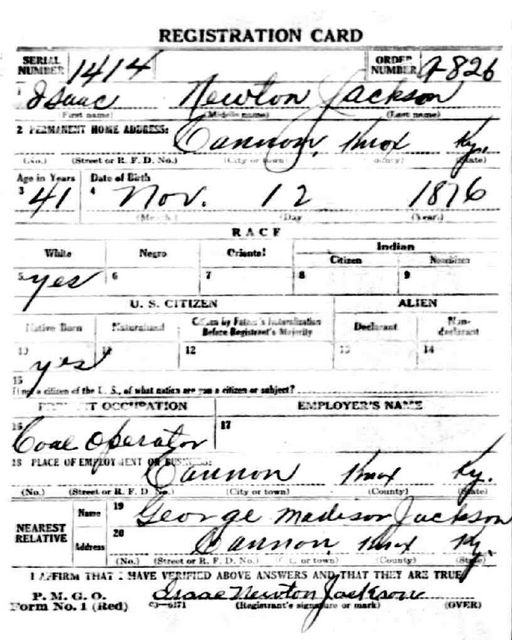 REGISTRATION CARD
SERIAL NUMBER 1414 ORDER NUMBER A-826
1 Isaac Newton Jackson
(First name) (Middle name) (Last name)
2 PERMANENT HOME ADDRESS: Cannon, Knox Ky.
(No.) (Street or R. F. D. No.) (City or town) (County) (State)
Age in Years Date of Birth
3 41 4 Nov. 12 1876
(Month) (Day) (Year)
RACE
White Negro Oriental Indian
Citizen Noncitizen
5 yes 6 7 8 9
U. S. CITIZEN ALIEN
Native Born Naturalized Citizen by Father's Naturalization Before Registrant's Majority Declarant Non-declarant
10 yes 11 12 13 14
15
If not a citizen of the U. S., of what nation are you a citizen or subject?
PRESENT OCCUPATION EMPLOYER'S NAME
16 Coal Operator 17
18 PLACE OF EMPLOYMENT OR BUSINESS:
Cannon Knox Ky.
(No.) (Street or R. F. D. No.) (City or town) (County) (State)
NEAREST RELATIVE Name 19 George Madison Jackson
Address 20 Cannon, Knox Ky.
(No.) (Street or R. F. D. No.) (City or town) (County) (State)
I AFFIRM THAT I HAVE VERIFIED ABOVE ANSWERS AND THAT THEY ARE TRUE
P. M. G. O.
Form No. 1 (Red) Isaac Newton Jackson
(Registrant's signature or mark) (OVER)